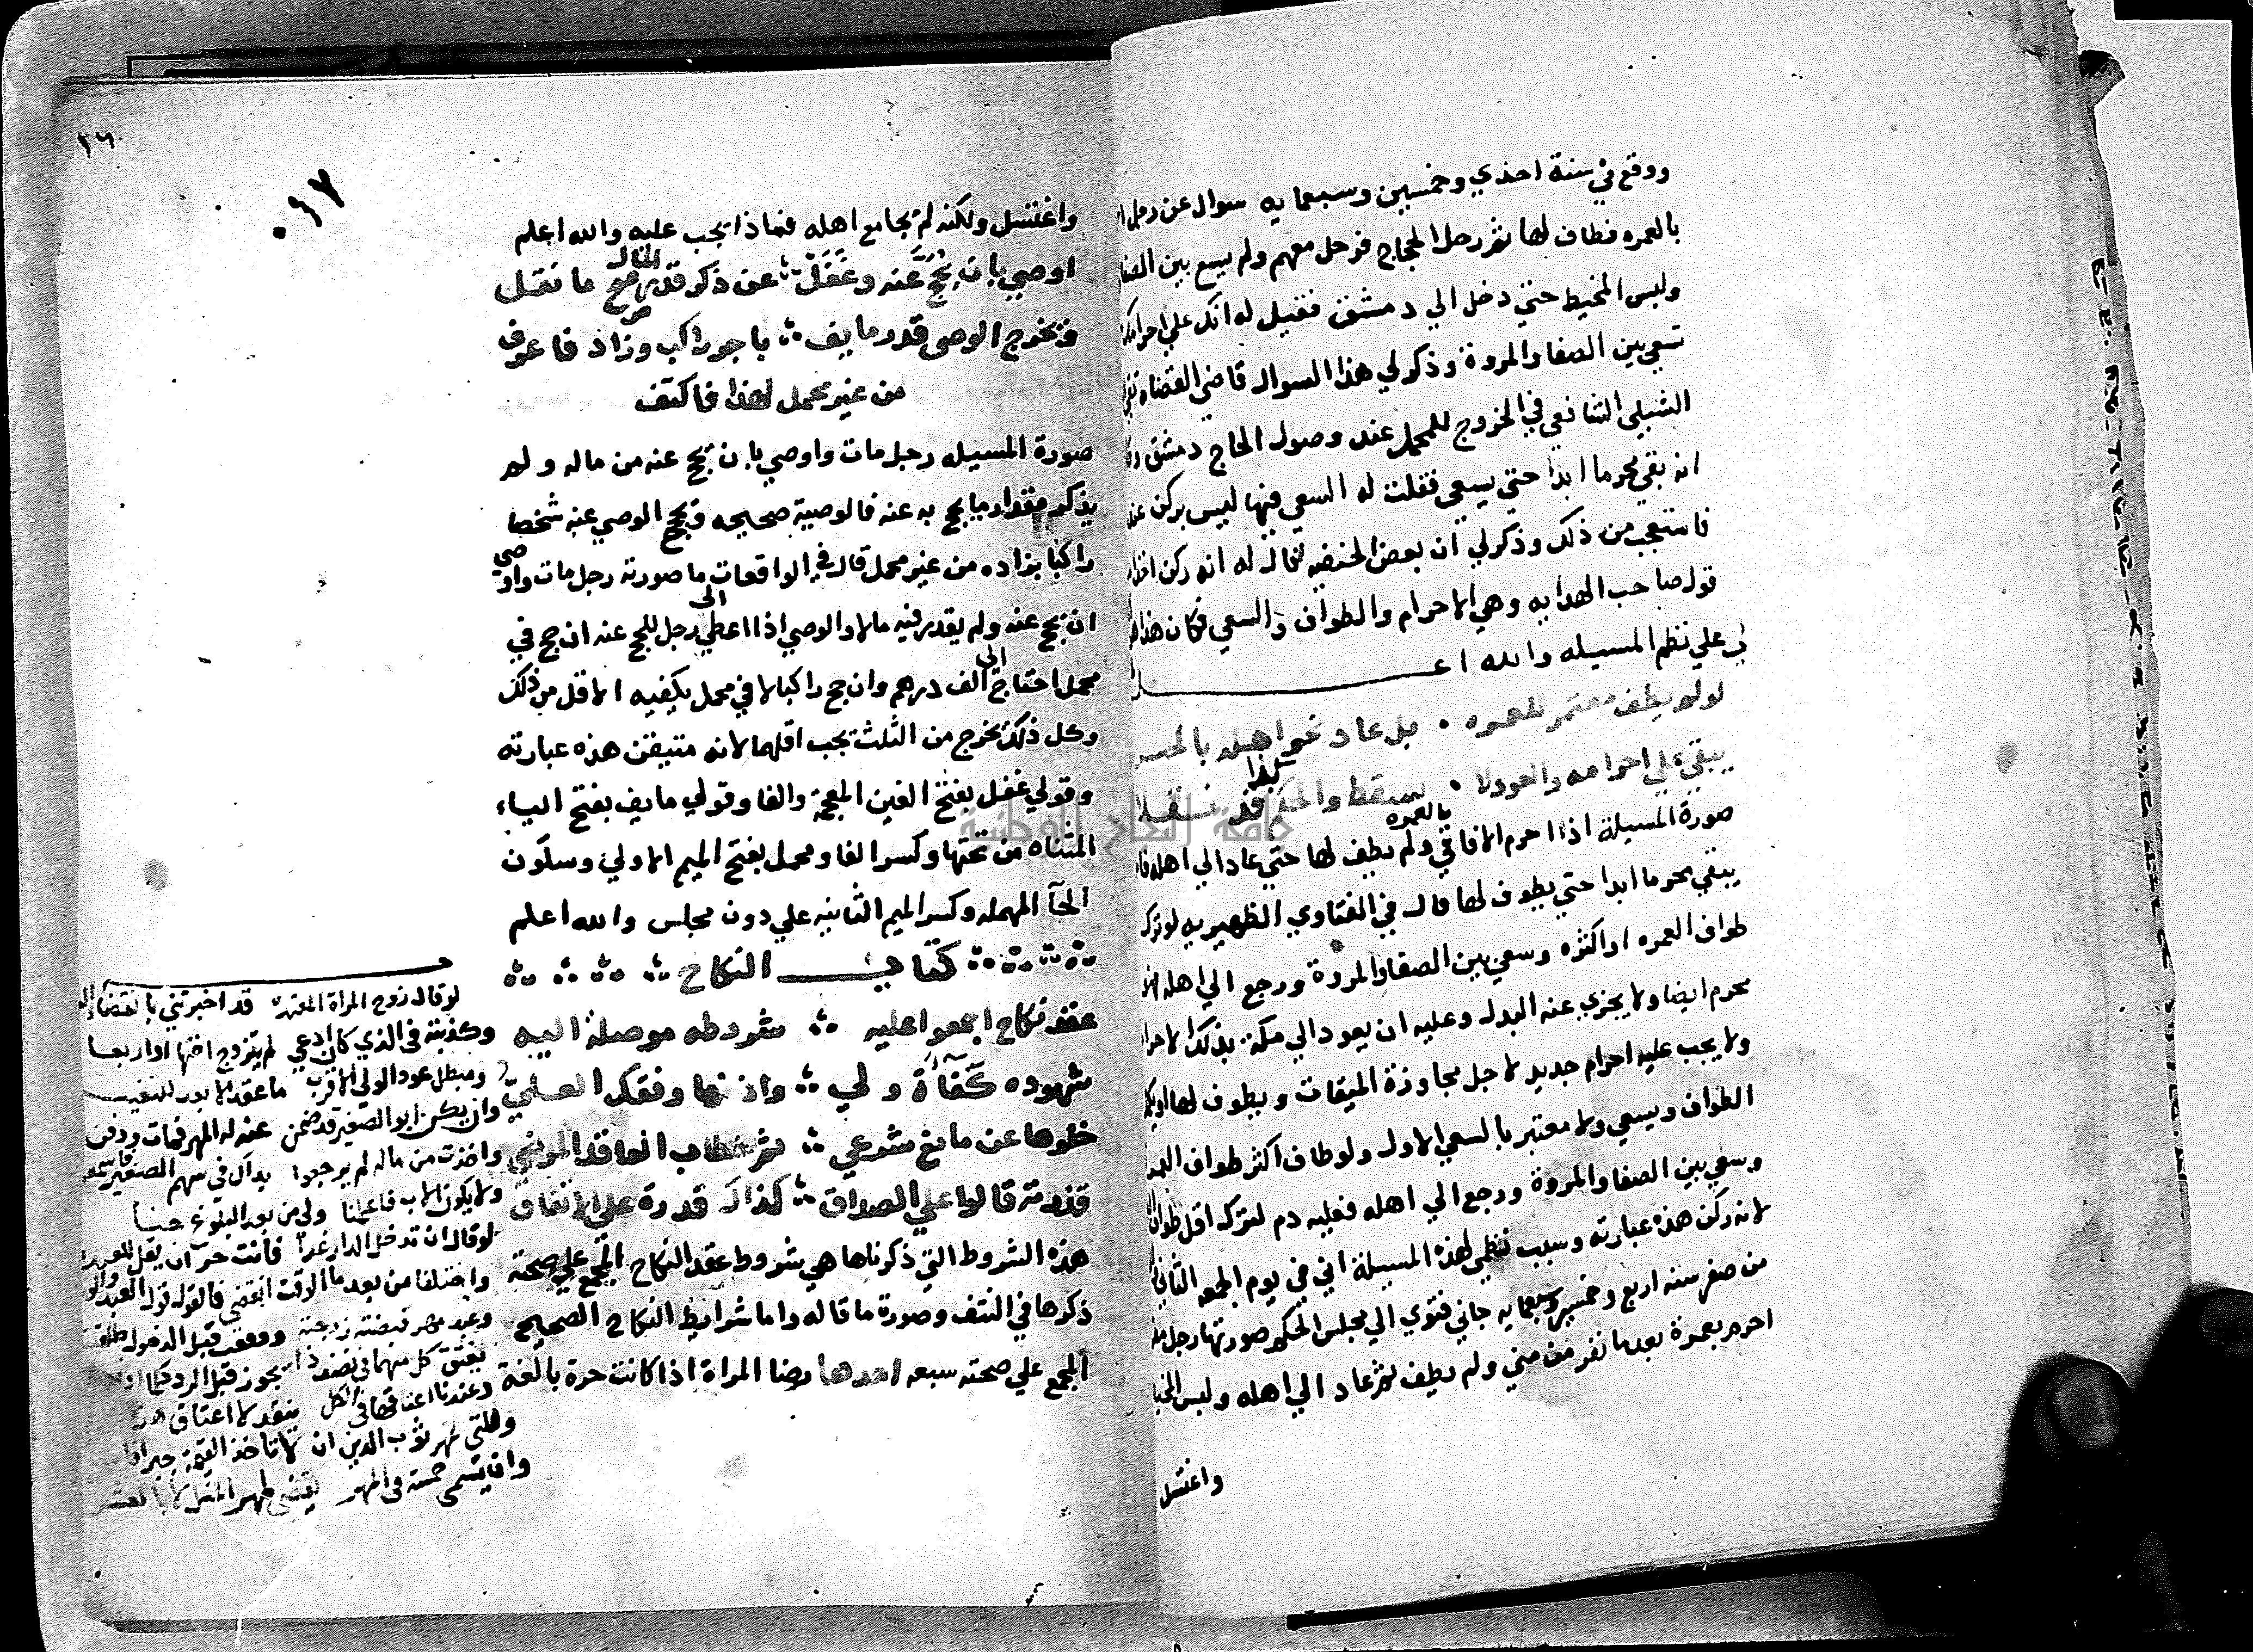 ووقع في سنة احدي وخمسين وسبعمايه سوال عن رجل
بالعمره فطاف لها ثم رحل الحجاج فرحل معهم ولم يسع بين الصفا
ولبس المخيط حتي دخل الي دمشق فقيل له انك علي احرامك
تسعي بين الصفا والمروة وذكر لي هذا السوال قاضي القضاه تقي
الشبلي الشافعي في الخروج للمحمل عند وصول الحاج دمشق
انه بقي محرما ابدا حتي يسعي فقلت له السعي فيها ليس بركن
فاستعجب من ذلك وذكر لي ان بعض الحنفيه قال له انه ركن
قول صاحب الهدايه وهي الاحرام والطواف والسعي فكان هذا
لي علي نظم المسيله والله اعلم
لو لم يطف معتمر للعمره بل عاد نحو اهله
يبقي علي احرامه والعود لا يسقط والحكم كذا قد نقلا
صورة المسيلة اذا احرم الافاقي بالعمره ولم يطف لها حتي عاد الي اهله
يبقي محرما ابدا حتي يطوف لها قال في الفتاوي الظهيريه لو ترك
طواف العمره او اكثره وسعي بين الصفا والمروة ورجع الي اهله
محرم ايضا ولا يجزي عنه البدل وعليه ان يعود الي مكة بذلك الاحرام
ولا يجب عليه احرام جديد لاجل مجاوزة الميقات ويطوف لها
الطواف ويسعي ولا معتبر بالسعي الاول ولو طاف اكثر طواف العمره
وسعي بين الصفا والمروة ورجع الي اهله فعليه دم لترك اقل طواف
لانه ركن هذه عبارته وسبب نظمي لهذه المسيلة اني في يوم الجمعه الثاني
من صفر سنه اربع وخمسين وسبعمايه جاني فتوي الي مجلس الحكم صورتها رجل
احرم بعمرة بعدما نفر من مني ولم يطف ثم عاد الي اهله ولبس
واغتسل
٢٦
٠١٧
واغتسل ولكنه لم يجامع اهله فماذا يجب عليه والله اعلم
اوصي بان يحج عنه وغفل عن ذكر قدر المال مع ما نقل
فيخرج الوصي قدر ما يفي باجر راكب وزاد فاعرف
من غير محمل لهذا فاكتف
صورة المسيله رجل مات واوصي بان يحج عنه من ماله ولم
يذكر مقدار ما يحج به عنه فالوصية صحيحه ويحج الوصي عنه شخصا
راكبا بزاده من غير محمل قال في الواقعات ما صورته رجل مات واوصي
ان يحج عنه ولم يقدر فيه مالا والوصي اذا اعطي الي رجل للحج عنه ان حج في
محمل احتاج الي الف درهم وان حج راكبا لا في محمل يكفيه الاقل من ذلك
وكل ذلك يخرج من الثلث يجب اقلها لانه متيقن هذه عبارته
وقولي غفل بفتح الغين المعجمة والفا وقولي ما يفي بفتح الياء
المثناه من تحتها وكسر الفا ومحمل بفتح الميم الاولي وسكون
الحآ المهمله وكسر الميم الثانيه علي دون مجلس والله اعلم
كتاب النكاح
عقد نكاح اجمعوا عليه شروطه موصلة اليه
شهوده كفأة ولي واذنها وفقد
خلوها عن مانع شرعي ثم خطاب العاقد المرضي
قدرته قالوا علي الصداق كذاك قدرة علي الانفاق
هذه الشروط التي ذكرناها هي شروط عقد النكاح المجمع علي صحته
ذكرها في النتف وصورة ما قاله واما شرايط النكاح الصحيح
المجمع علي صحته سبعه احدها رضا المراة اذا كانت حرة بالغة
لو قال زوج المراة المعتده قد اخبرتني بانقضاء
وكذبته في الذي كان ادعي لم يتزوج اختها او اربعا
ومبطل عود الولي الاقرب ما عقد الابعد
وان يكن ابو الصغير قد ضمن عنه له المهر فمات ودفن
واخذت من ماله لم يرجعوا بذاك في سهم الصغير
ولا يكون الاب فاعلمنا ولي من بعد البلوغ جنا
لو قال ان تدخل الدار غدا فانت حر
واختلفا من بعد ما الوقت انقضي فالقول قول العبد
وعبد مهر قبضته زوجته ووقعت قبل الدخول
يعتق كل منهما في نصف ذا يجوز قبل الرد
وعندنا اعتاقها في الكل ينفذ لا اعتاق هذا
وان يسمي خمسة في المهر يقضي